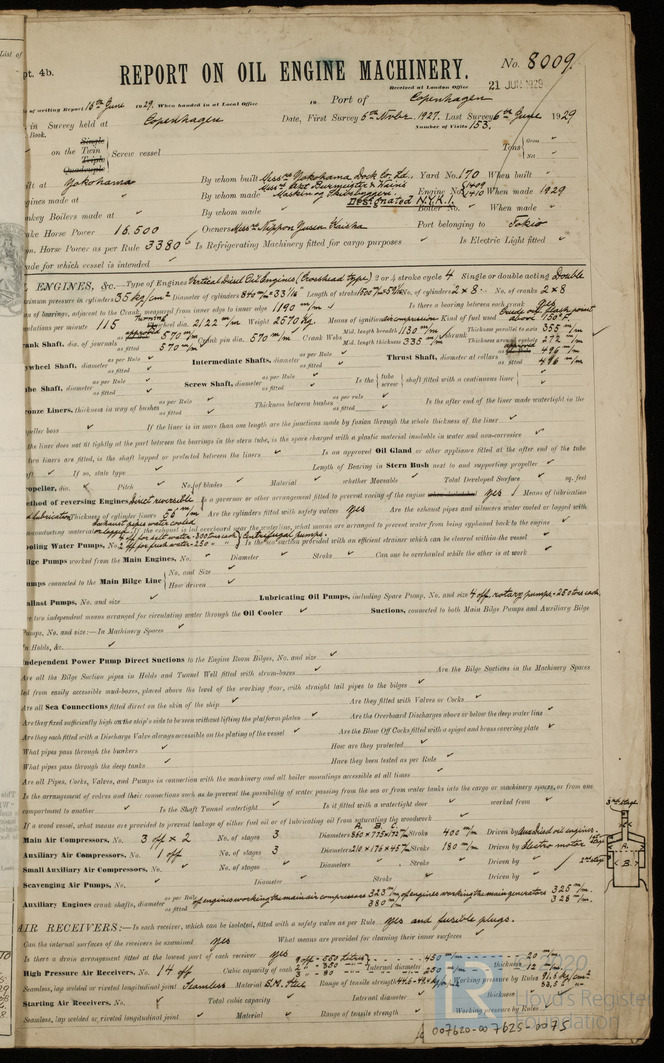 List of
pt. 4b.
No. 8009.
REPORT ON OIL ENGINE MACHINERY.
Received at London Office 21 JUN 1929
of writing Report 16th June 1929. When handed in at Local Office 19 Port of Copenhagen
in Survey held at Copenhagen Date, First Survey 5th Novbr. 1927. Last Survey 6th June 1929
Book.
Number of Visits 153.
Single
on the Twin Screw vessel
Triple
Quadruple
Tons Gross
Net
ilt at Yokohama By whom built Messrs Yokohama Dock Co. Ld. Yard No. 170 When built
gines made at By whom made Messrs Akt. Burmeister & Wain's Engine No. 1409 1410 When made 1929
Maskin og Skibsbyggeri.
nkey Boilers made at By whom made Designated N.Y.K.1. Boiler No. When made
ake Horse Power 16,500 Owners Messrs Nippon Yusen Kaisha Port belonging to Tokio
m. Horse Power as per Rule 3380 Is Refrigerating Machinery fitted for cargo purposes Is Electric Light fitted
rade for which vessel is intended
L ENGINES, &c.—Type of Engines Vertical Diesel Oil Engines (Crosshead type) 2 or 4 stroke cycle 4 Single or double acting Double
aximum pressure in cylinders 35 kg/cm² Diameter of cylinders 840 m/m = 33 1/16" Length of stroke 1500 m/m No. of cylinders 2 × 8 No. of cranks 2 × 8
n of bearings, adjacent to the Crank, measured from inner edge to inner edge 1190 m/m Is there a bearing between each crank yes
olutions per minute 115 Turning wheel dia. 2122 m/m Weight 2670 kg. Means of ignition air compression Kind of fuel used Crude oil flash point above 150° F.
rank Shaft, dia. of journals approved 570 m/m as fitted 570 m/m Crank pin dia. 570 m/m Crank Webs Mid. length breadth 1130 m/m Mid. length thickness 335 m/m shrunk Thickness parallel to axis 355 m/m Thickness around eyehole 272 m/m
ywheel Shaft, diameter as per Rule as fitted Intermediate Shafts, diameter as per Rule as fitted Thrust Shaft, diameter at collars approved 496 m/m as fitted 496 m/m
ube Shaft, diameter as per Rule as fitted Screw Shaft, diameter as per Rule as fitted Is the tube screw shaft fitted with a continuous liner
ronze Liners, thickness in way of bushes as per Rule as fitted Thickness between bushes as per rule as fitted Is the after end of the liner made watertight in the
peller boss If the liner is in more than one length are the junctions made by fusion through the whole thickness of the liner
the liner does not fit tightly at the part between the bearings in the stern tube, is the space charged with a plastic material insoluble in water and non-corrosive
two liners are fitted, is the shaft lapped or protected between the liners Is an approved Oil Gland or other appliance fitted at the after end of the tube
aft If so, state type Length of Bearing in Stern Bush next to and supporting propeller
opeller, dia. Pitch No. of blades Material whether Moveable Total Developed Surface sq. feet
ethod of reversing Engines Direct reversible Is a governor or other arrangement fitted to prevent racing of the engine yes Means of lubrication
d lubrication Thickness of cylinder liners 56 m/m Are the cylinders fitted with safety valves yes Are the exhaust pipes and silencers water cooled or lagged with
nconducting material Exhaust pipes water cooled or lagged If the exhaust is led overboard near the waterline, what means are arranged to prevent water from being syphoned back to the engine
ooling Water Pumps, No. 4 off for salt water - 300 tons each 2 off for fresh water - 250 Centrifugal pumps. Is the sea suction provided with an efficient strainer which can be cleared within the vessel
ilge Pumps worked from the Main Engines, No. Diameter Stroke Can one be overhauled while the other is at work
umps connected to the Main Bilge Line No. and Size
How driven
allast Pumps, No. and size Lubricating Oil Pumps, including Spare Pump, No. and size 4 off. rotary pumps - 250 tons each.
re two independent means arranged for circulating water through the Oil Cooler Suctions, connected to both Main Bilge Pumps and Auxiliary Bilge
Pumps, No. and size:—In Machinery Spaces
n Holds, &c.
ndependent Power Pump Direct Suctions to the Engine Room Bilges, No. and size
Are all the Bilge Suction pipes in Holds and Tunnel Well fitted with strum-boxes Are the Bilge Suctions in the Machinery Spaces
led from easily accessible mud-boxes, placed above the level of the working floor, with straight tail pipes to the bilges
Are all Sea Connections fitted direct on the skin of the ship Are they fitted with Valves or Cocks
Are they fixed sufficiently high on the ship's side to be seen without lifting the platform plates Are the Overboard Discharges above or below the deep water line
Are they each fitted with a Discharge Valve always accessible on the plating of the vessel Are the Blow Off Cocks fitted with a spigot and brass covering plate
What pipes pass through the bunkers How are they protected
What pipes pass through the deep tanks Have they been tested as per Rule
Are all Pipes, Cocks, Valves, and Pumps in connection with the machinery and all boiler mountings accessible at all times
Is the arrangement of valves and their connections such as to prevent the possibility of water passing from the sea or from water tanks into the cargo or machinery spaces, or from one
compartment to another Is the Shaft Tunnel watertight Is it fitted with a watertight door worked from
If a wood vessel, what means are provided to prevent leakage of either fuel oil or of lubricating oil from saturating the woodwork
A. B. C.
Main Air Compressors, No. 3 off × 2 No. of stages 3 Diameters 860 × 775 × 175 m/m Stroke 400 m/m Driven by Aux. Diesel oil engines.
Auxiliary Air Compressors, No. 1 off No. of stages 3 Diameters 210 × 176 × 45 m/m Stroke 180 m/m Driven by Electro motor
Small Auxiliary Air Compressors, No. No. of stages Diameters Stroke Driven by
Scavenging Air Pumps, No. Diameter Stroke Driven by
Auxiliary Engines crank shafts, diameter as per Rule as fitted of engines working the main air compressors 323 m/m 380 m/m of engines working the main generators 325 m/m. 328 m/m.
3rd stage
C
1st stage
A.
2nd stage
B.
AIR RECEIVERS:—Is each receiver, which can be isolated, fitted with a safety valve as per Rule yes and fusible plugs.
Can the internal surfaces of the receivers be examined yes What means are provided for cleaning their inner surfaces
Is there a drain arrangement fitted at the lowest part of each receiver yes
High Pressure Air Receivers, No. 14 off Cubic capacity of each 9 off - 550 litres 2 " - 350 3 " - 90 Internal diameter 450 m/m 250 m/m thickness 20 m/m 12 m/m
Seamless, lap welded or riveted longitudinal joint Seamless Material S.M. Steel Range of tensile strength Working pressure by Rules
Starting Air Receivers, No. Total cubic capacity Internal diameter thickness
Seamless, lap welded or riveted longitudinal joint Material Range of tensile strength Working pressure by Rules
© 2020
Lloyd's Register
Foundation
007620-007625-0075